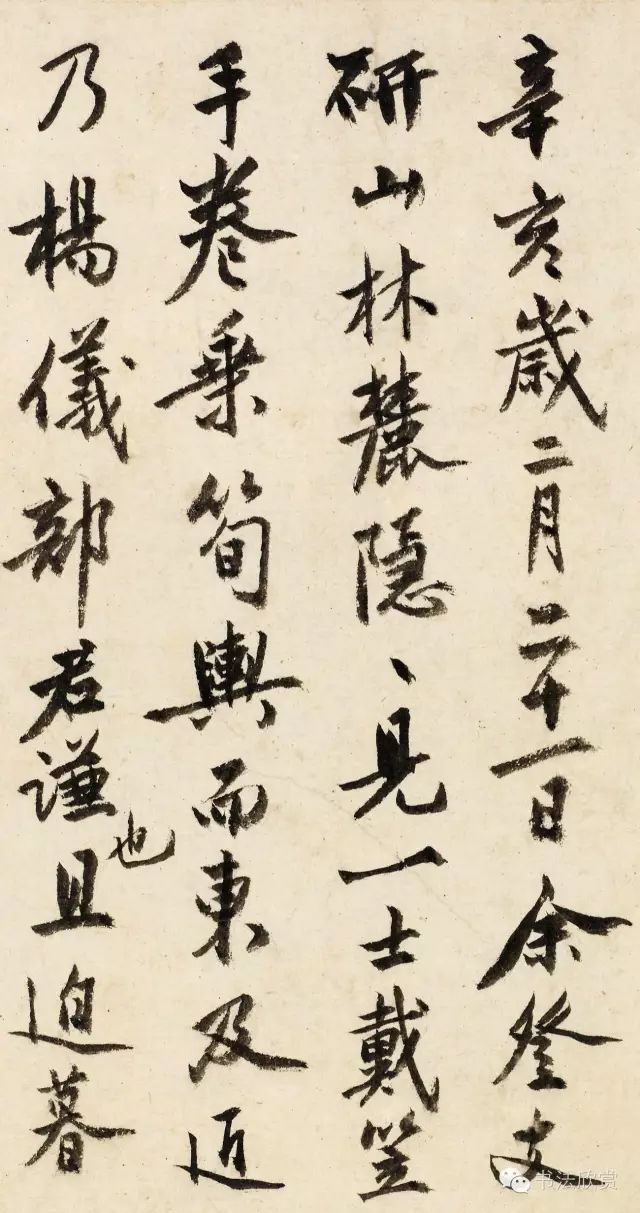 辛亥歲二月二十一日余登支
硏山林麓隱、見一士戴笠
手卷乗筍輿而東及近
乃楊儀部君謙也且迫暮
书法欣赏